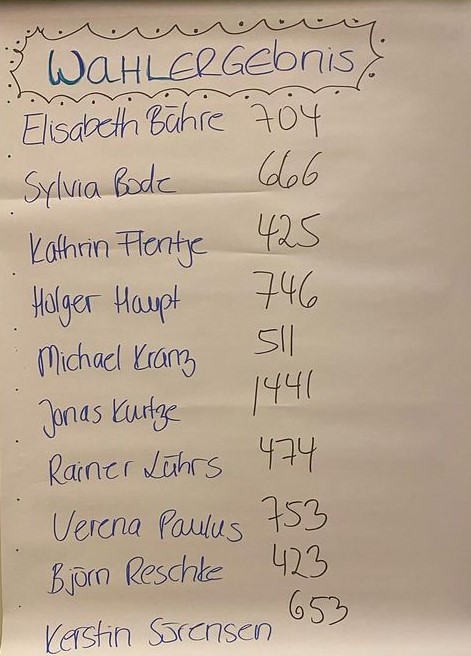 WAHLERGEbnis
Elisabeth Bähre 704
Sylvia Bode 666
Kathrin Flentje 425
Holger Haupt 746
Michael Kranz 511
Jonas Kurtze 1441
Rainer Lührs 474
Verena Paulus 753
Björn Reschke 423
Kerstin Sörensen 653